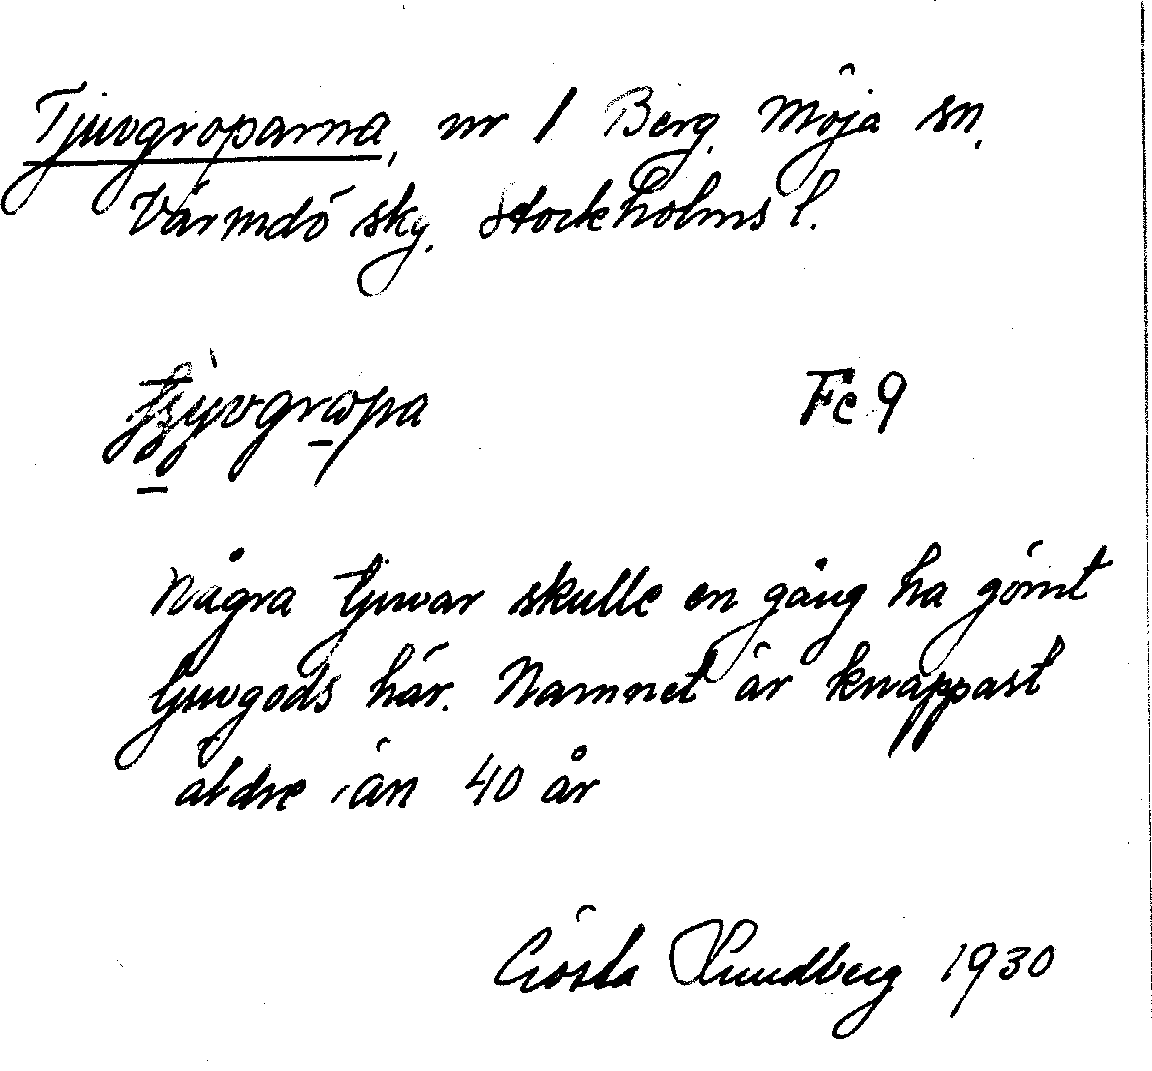 Tjuvgroparna, nr 1 Berg, Möja sn.
Värmdö skg. Stockholms l.
Fc 9
Några tjuvar skulle en gång ha gömt
tjuvgods här. Namnet är knappast
äldre än 40 år
Gösta Lundberg 1930